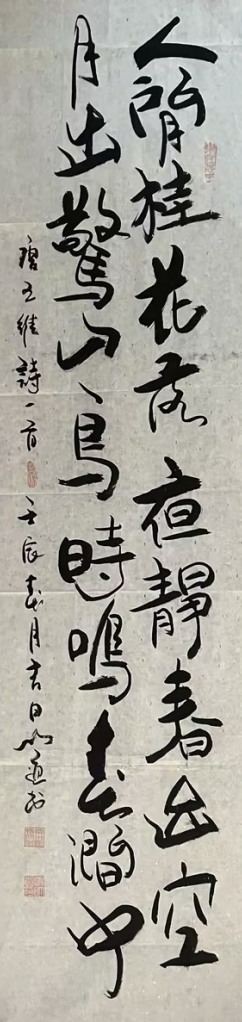 人閒桂花落夜靜春山空
月出驚山鳥時鳴春澗中
唐王維詩一首 壬辰春月吉日